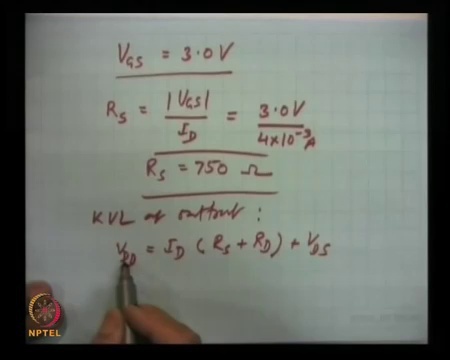 V_GS = 3.0 V
R_S = |V_GS| / I_D = 3.0 V / 4×10^-3 A
R_S = 750 Ω
KVL at output :
V_DD = I_D ( R_S + R_D ) + V_DS
NPTEL